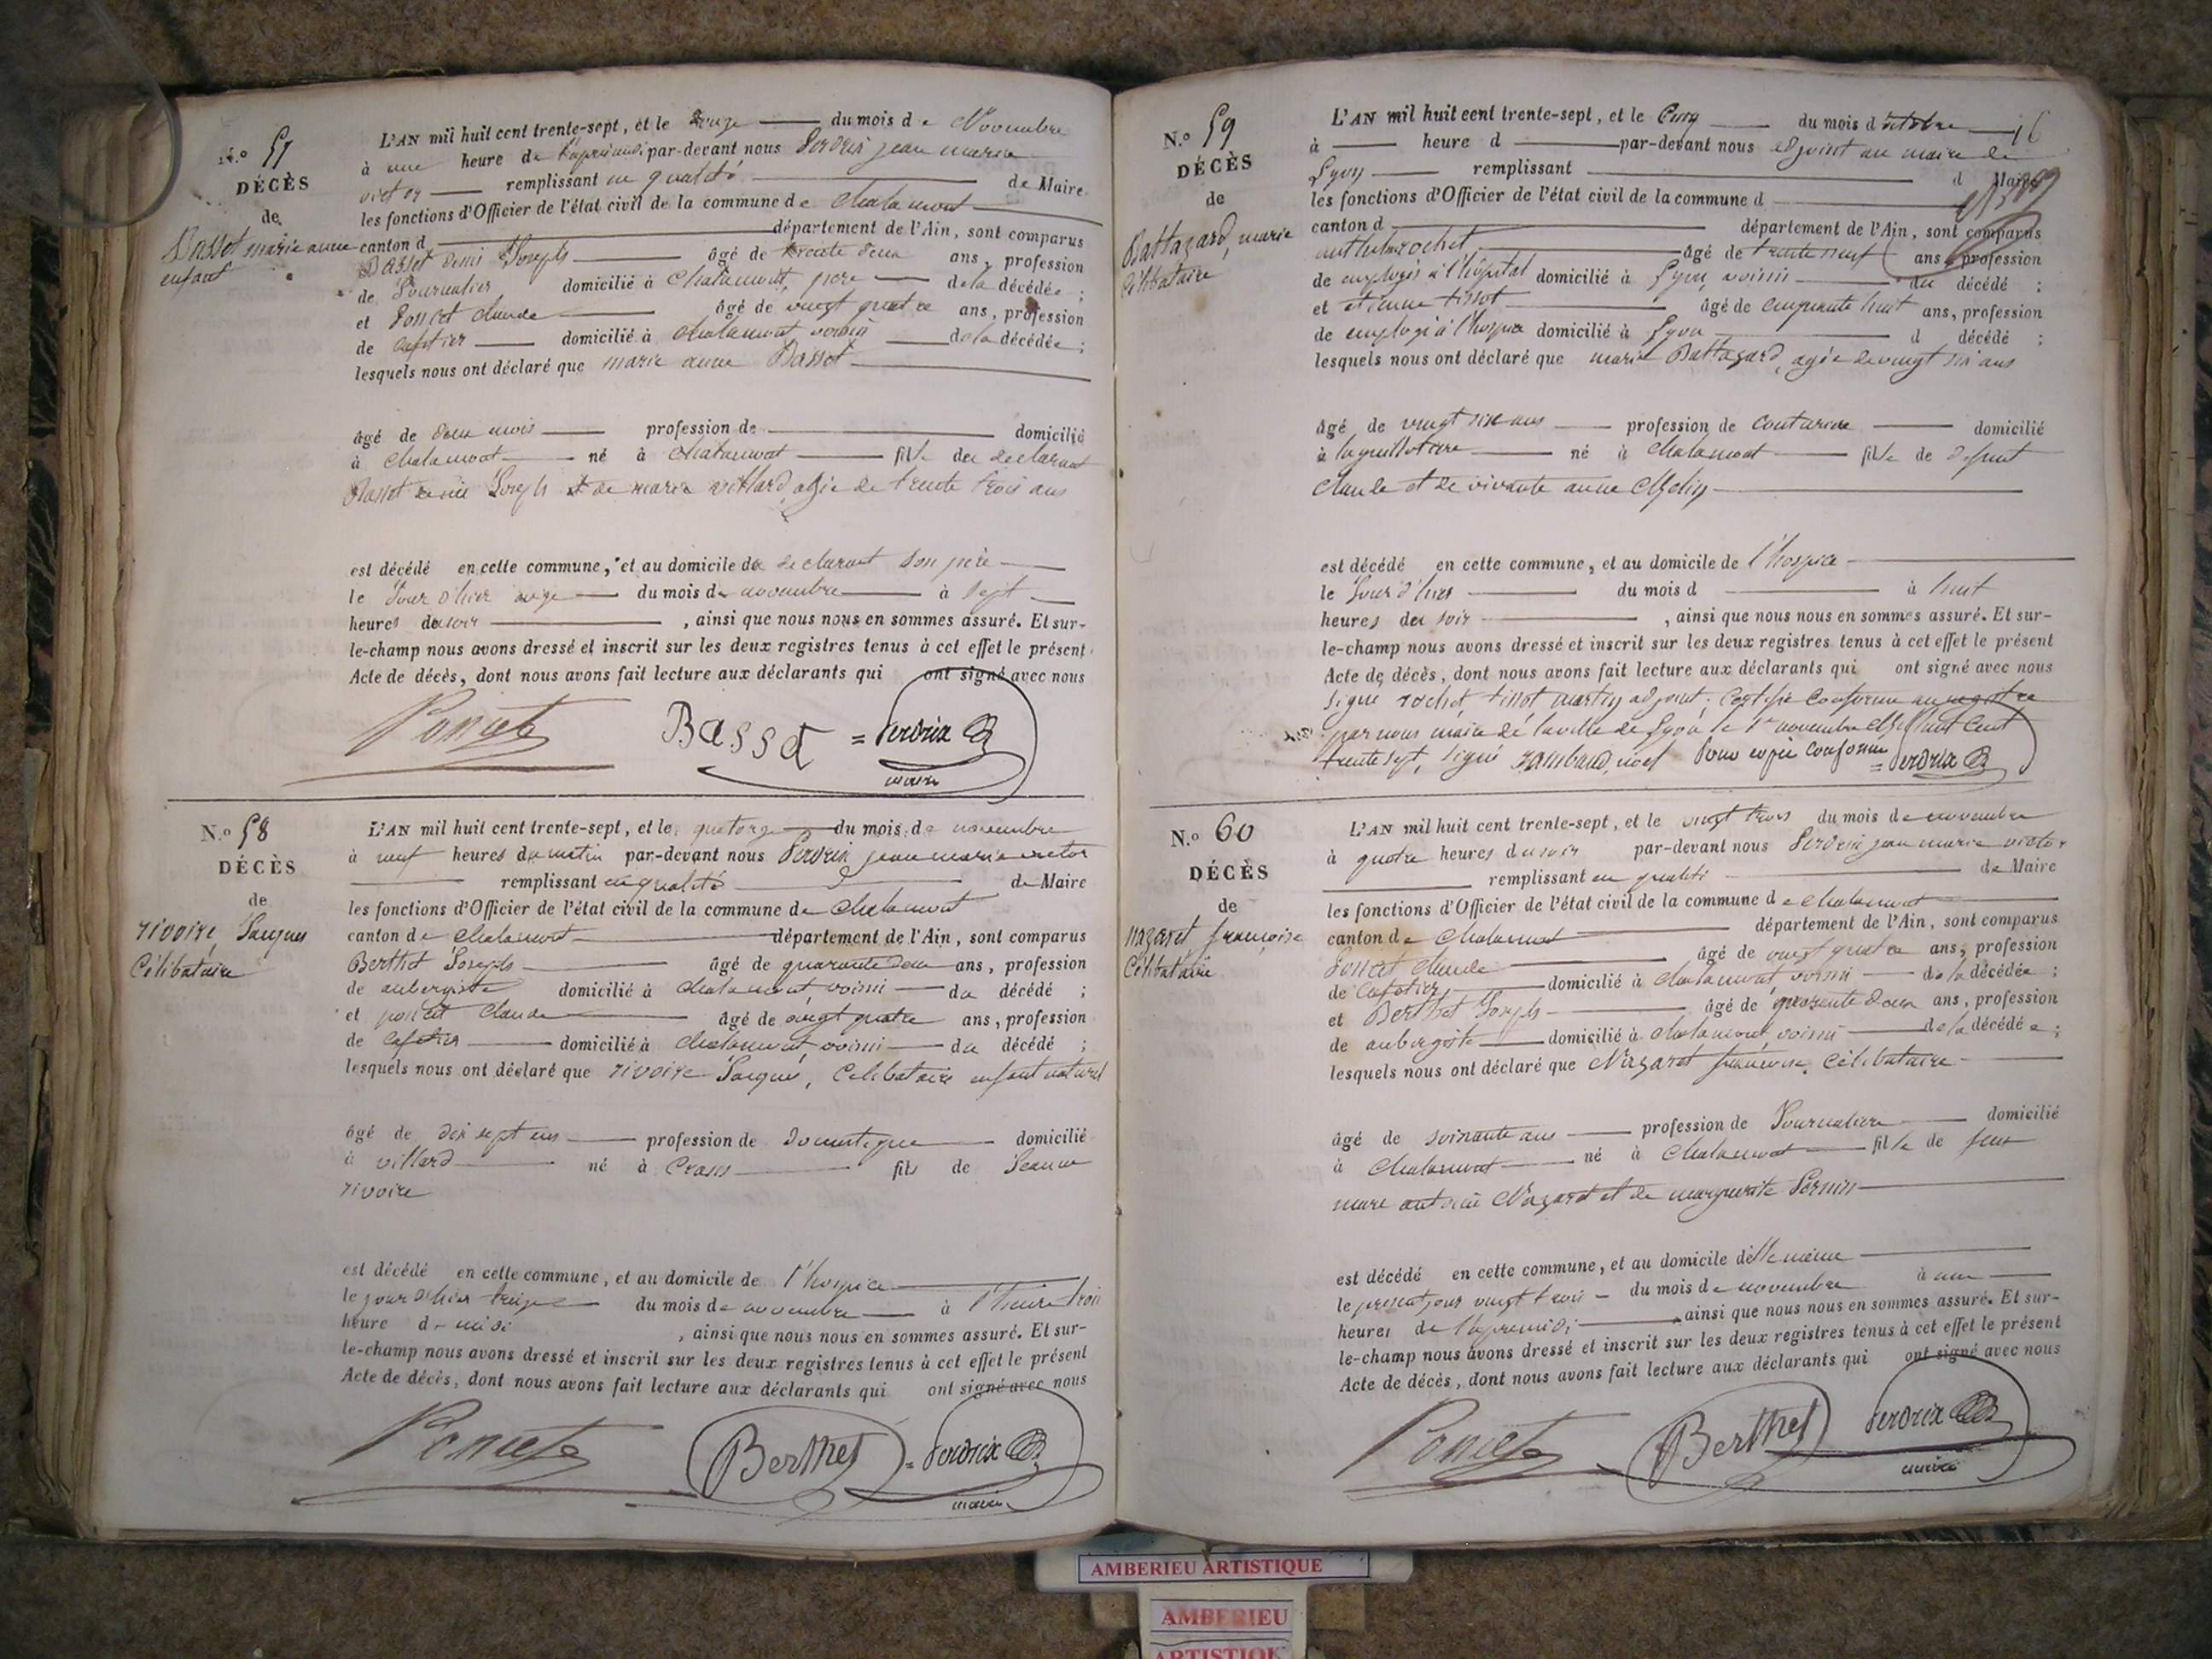 N.o 57
DÉCÈS
de
Basset marie anne
enfant
L'AN mil huit cent trente-sept, et le douze du mois de Novembre
à une heure de l'après midi par-devant nous Perdrix jean marie
victor remplissant en qualité de Maire
les fonctions d'Officier de l'état civil de la commune de Chalamont
canton d département de l'Ain, sont comparus
Basset denis Joseph âgé de trente deux ans, profession
de Journalier domicilié à Chalamont, père de la décédée ;
et Poncet claude âgé de vingt quatre ans, profession
de cafetier domicilié à chalamont voisin de la décédée ;
lesquels nous ont déclaré que marie anne Basset
âgé de deux mois profession de domicilié
à chalamont né à chalamont fille du declarant
Basset denis Joseph et de marie villard, agée de trente trois ans
est décédé en cette commune, et au domicile du declarant son père
le Jour d'hier onze du mois de novembre à Sept
heures du soir , ainsi que nous nous en sommes assuré. Et sur-
le-champ nous avons dressé et inscrit sur les deux registres tenus à cet effet le présent
Acte de décès, dont nous avons fait lecture aux déclarants qui ont signé avec nous
Poncet Basset = Perdrix
maire
N.o 58
DÉCÈS
de
rivoire Jacques
Célibataire
L'AN mil huit cent trente-sept, et le quatorze du mois de novembre
à neuf heures du matin par-devant nous Perdrix jean marie victor
remplissant en qualité de Maire
les fonctions d'Officier de l'état civil de la commune de Chalamont
canton de Chalamont département de l'Ain, sont comparus
Berthet Joseph âgé de quarante deux ans, profession
de aubergiste domicilié à chalamont voisin du décédé ;
et poncet Claude âgé de vingt quatre ans, profession
de cafetier domicilié à Chalamont voisin du décédé ;
lesquels nous ont déclaré que rivoire Jacques, Célibataire enfant naturel
âgé de dix sept ans profession de domestique domicilié
à villard né à Crans fils de Jeanne
rivoire
est décédé en cette commune, et au domicile de l'hospice
le jour d'hier treize du mois de novembre à
heure de midi , ainsi que nous nous en sommes assuré. Et sur-
le-champ nous avons dressé et inscrit sur les deux registres tenus à cet effet le présent
Acte de décès, dont nous avons fait lecture aux déclarants qui ont signé avec nous
Poncet Berthet = Perdrix
maire
N.o 59
DÉCÈS
de
Baltazard, marie
Célibataire
16
L'AN mil huit cent trente-sept, et le Cinq du mois d'octobre
à heure d par-devant nous adjoint au maire de
Lyon remplissant d Maire
les fonctions d'Officier de l'état civil de la commune d
canton d département de l'Ain, sont comparus
rochet, âgé de trente neuf ans, profession
de employé à l'hôpital domicilié à Lyon, voisin du décédé ;
et etienne tissot âgé de cinquante huit ans, profession
de employé à l'hospice domicilié à Lyon d décédé ;
lesquels nous ont déclaré que marie Baltazard, agée de vingt six ans
âgé de vingt six ans profession de couturière domicilié
à la guillotière né à Chalamont fille de defunt
claude et de vivante anne
est décédé en cette commune, et au domicile de l'hospice
le Jour d'hier du mois d à huit
heures du soir , ainsi que nous nous en sommes assuré. Et sur-
le-champ nous avons dressé et inscrit sur les deux registres tenus à cet effet le présent
Acte de décès, dont nous avons fait lecture aux déclarants qui ont signé avec nous
Signé rochet, tissot martin adjoint. Certifié conforme au registre
par nous maire de la ville de Lyon le 1er novembre Mil huit cent
trente sept, signé rambaud, Pour copie conforme = Perdrix
N.o 60
DÉCÈS
de
Nazaret françoise
Célibataire
L'AN mil huit cent trente-sept, et le vingt trois du mois de novembre
à quatre heures du soir par-devant nous Perdrix jean marie victor
remplissant en qualité de Maire
les fonctions d'Officier de l'état civil de la commune de chalamont
canton de Chalamont département de l'Ain, sont comparus
Poncet claude âgé de vingt quatre ans, profession
de Cafetier domicilié à chalamont, voisin de la décédée ;
et Berthet Joseph âgé de quarante deux ans, profession
de aubergiste domicilié à chalamont, voisin de la décédée ;
lesquels nous ont déclaré que Nazaret françoise, Célibataire
âgé de soixante ans profession de Journalière domicilié
à Chalamont né à Chalamont fille de feux
marc antoine Nazaret et de marguerite Pernin
est décédé en cette commune, et au domicile d'elle même
le présent jour vingt trois du mois de novembre à une
heures de l'apremidi , ainsi que nous nous en sommes assuré. Et sur-
le-champ nous avons dressé et inscrit sur les deux registres tenus à cet effet le présent
Acte de décès, dont nous avons fait lecture aux déclarants qui ont signé avec nous
Poncet Berthet Perdrix
maire
AMBERIEU ARTISTIQUE
AMBERIEU
ARTISTIQUE